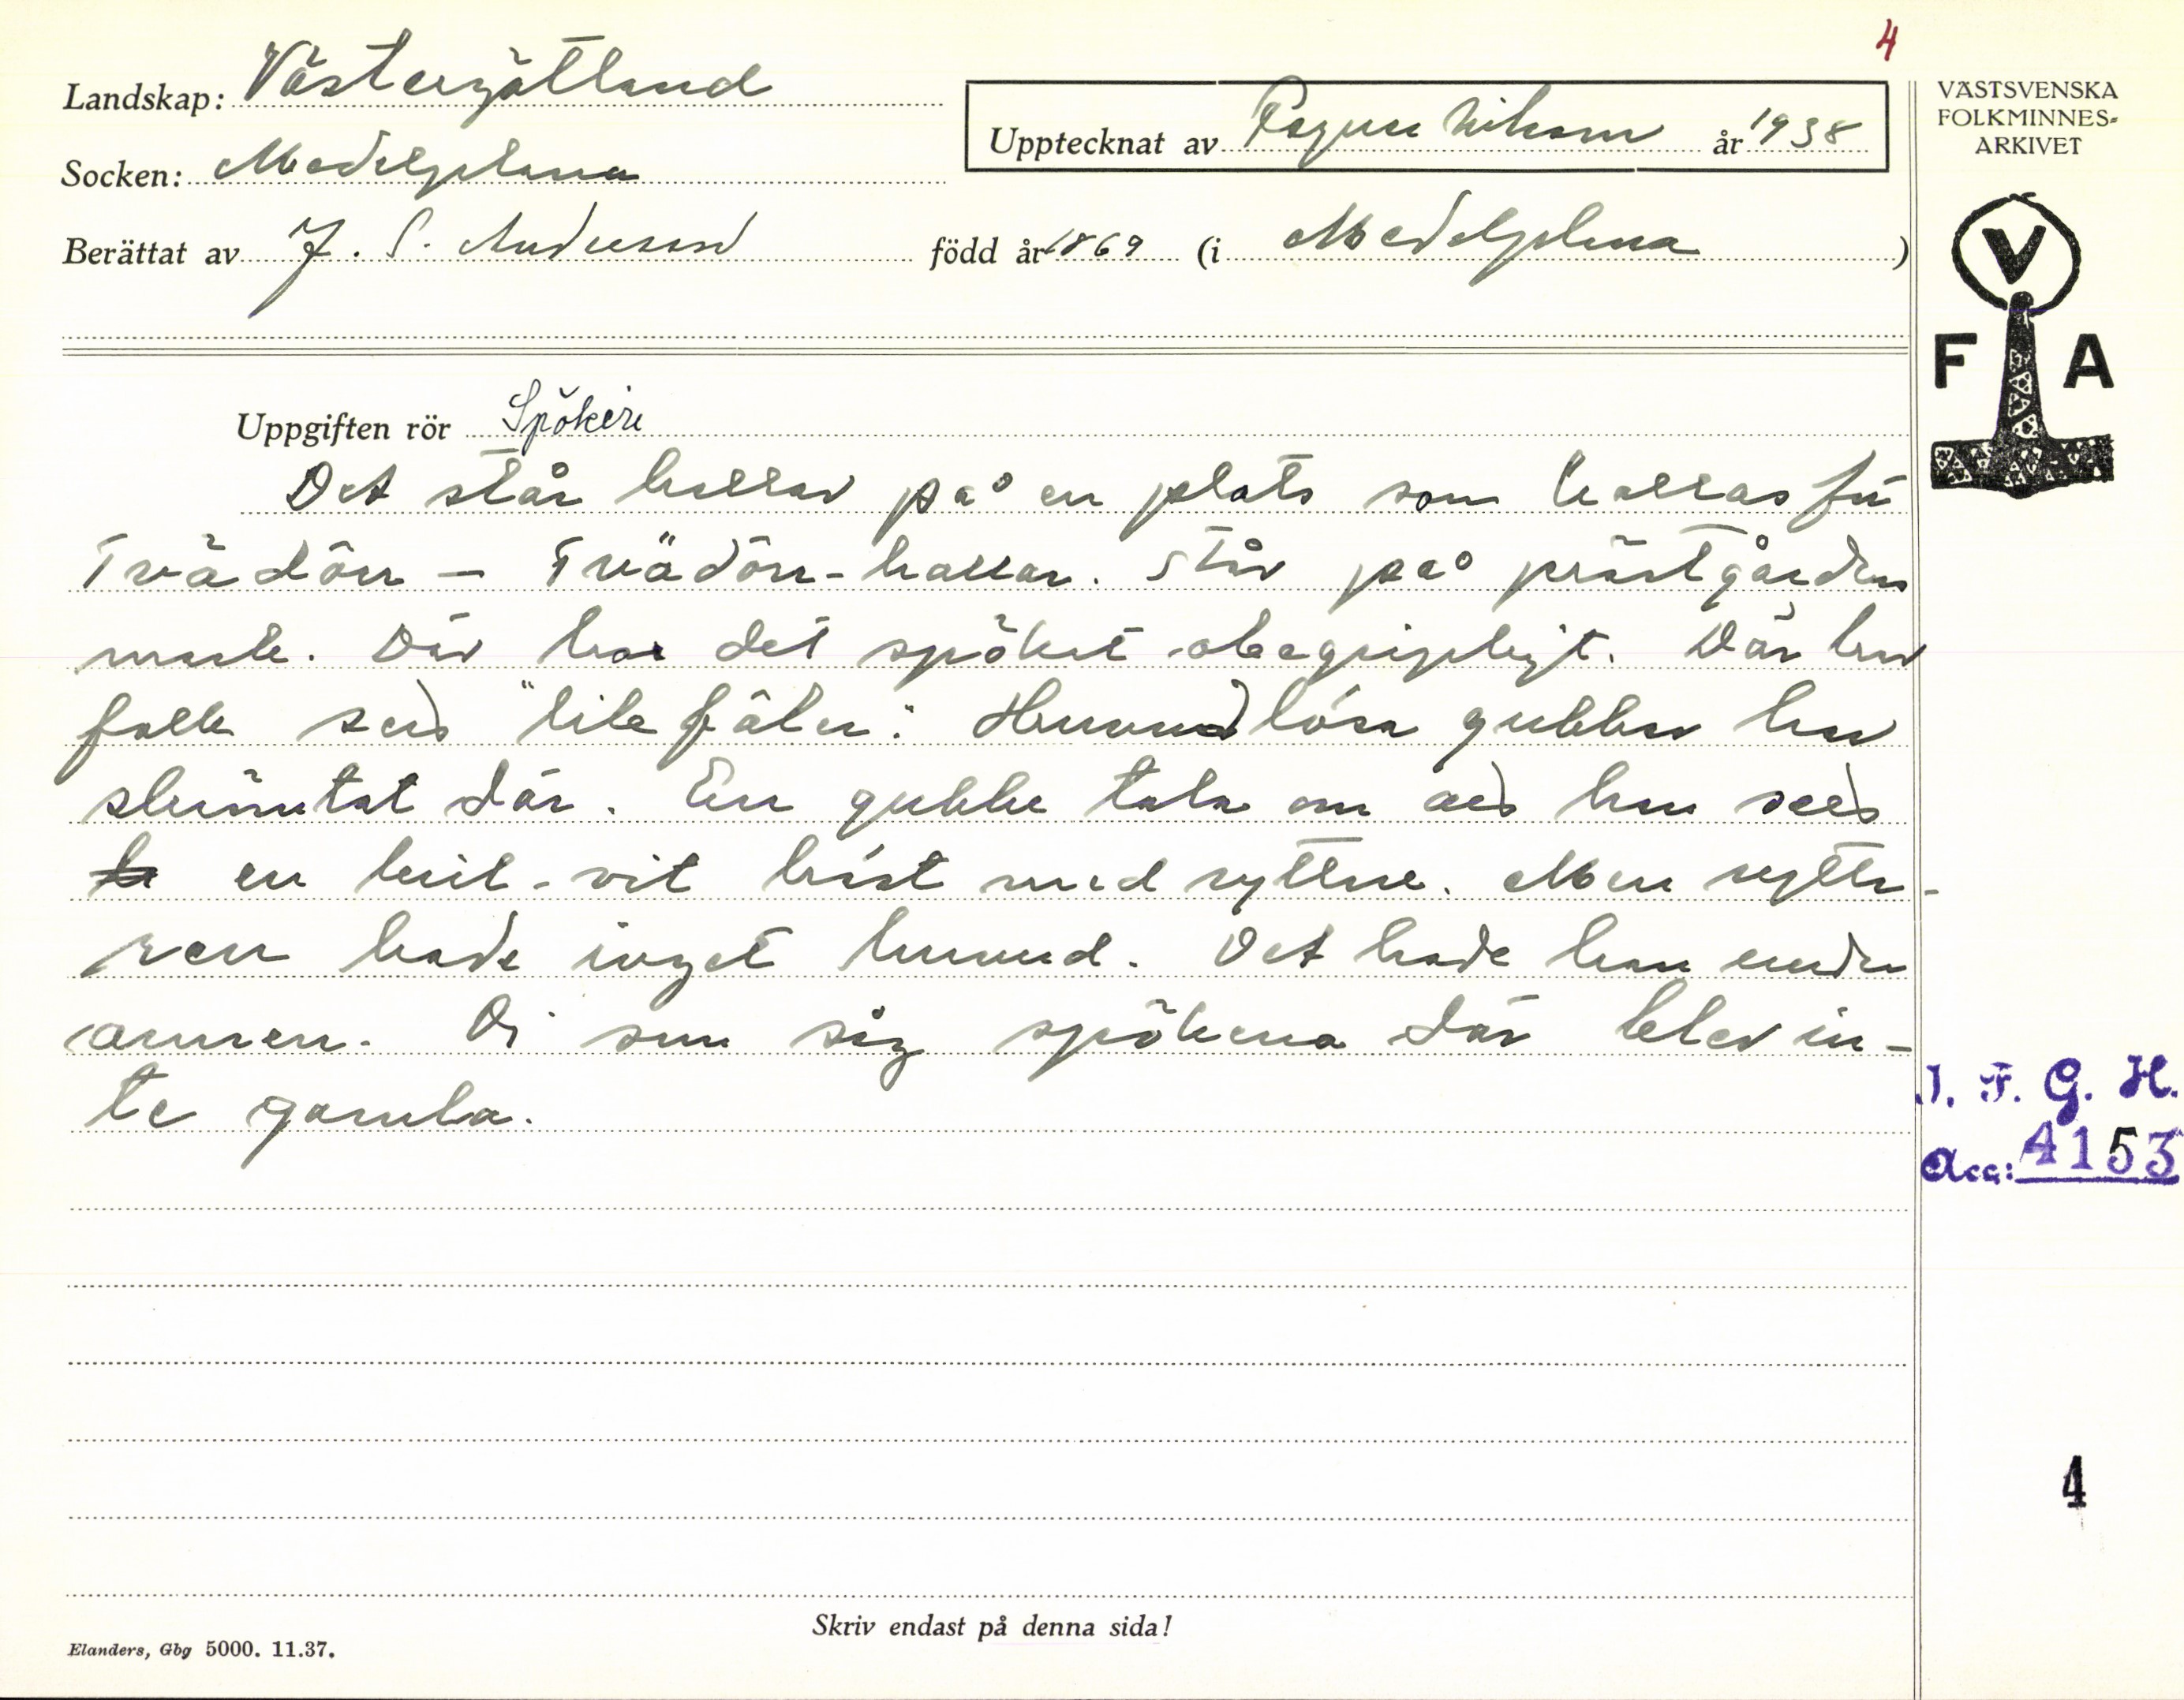 4
Landskap: Västergötland
Upptecknat av Ragnar Nilsson år 1938
Socken: Medelplana
Berättat av J. S. Andersson född år 1869 (i Medelplana)
VÄSTSVENSKA
FOLKMINNES-
ARKIVET
V
F A
Uppgiften rör Spökeri
Det står hallar på en plats som kallas för
Tvädörr – Tvädörr-hallar. Står på prästgårdens
mark. Där har det spökat obegripligt. Där har
folk sed "lite fåler". Huvudlösa gubbar har
skrämtat där. En gubbe tala om ad han sed
en krit-vit häst med ryttare. Men rytta-
ren hade inget huvud. Det hade han under
armen. Di som såg spökena där blev in-
te gamla.
I. F. G. H.
Acc: 4153
4
Skriv endast på denna sida!
Elanders, Gbg 5000. 11.37.